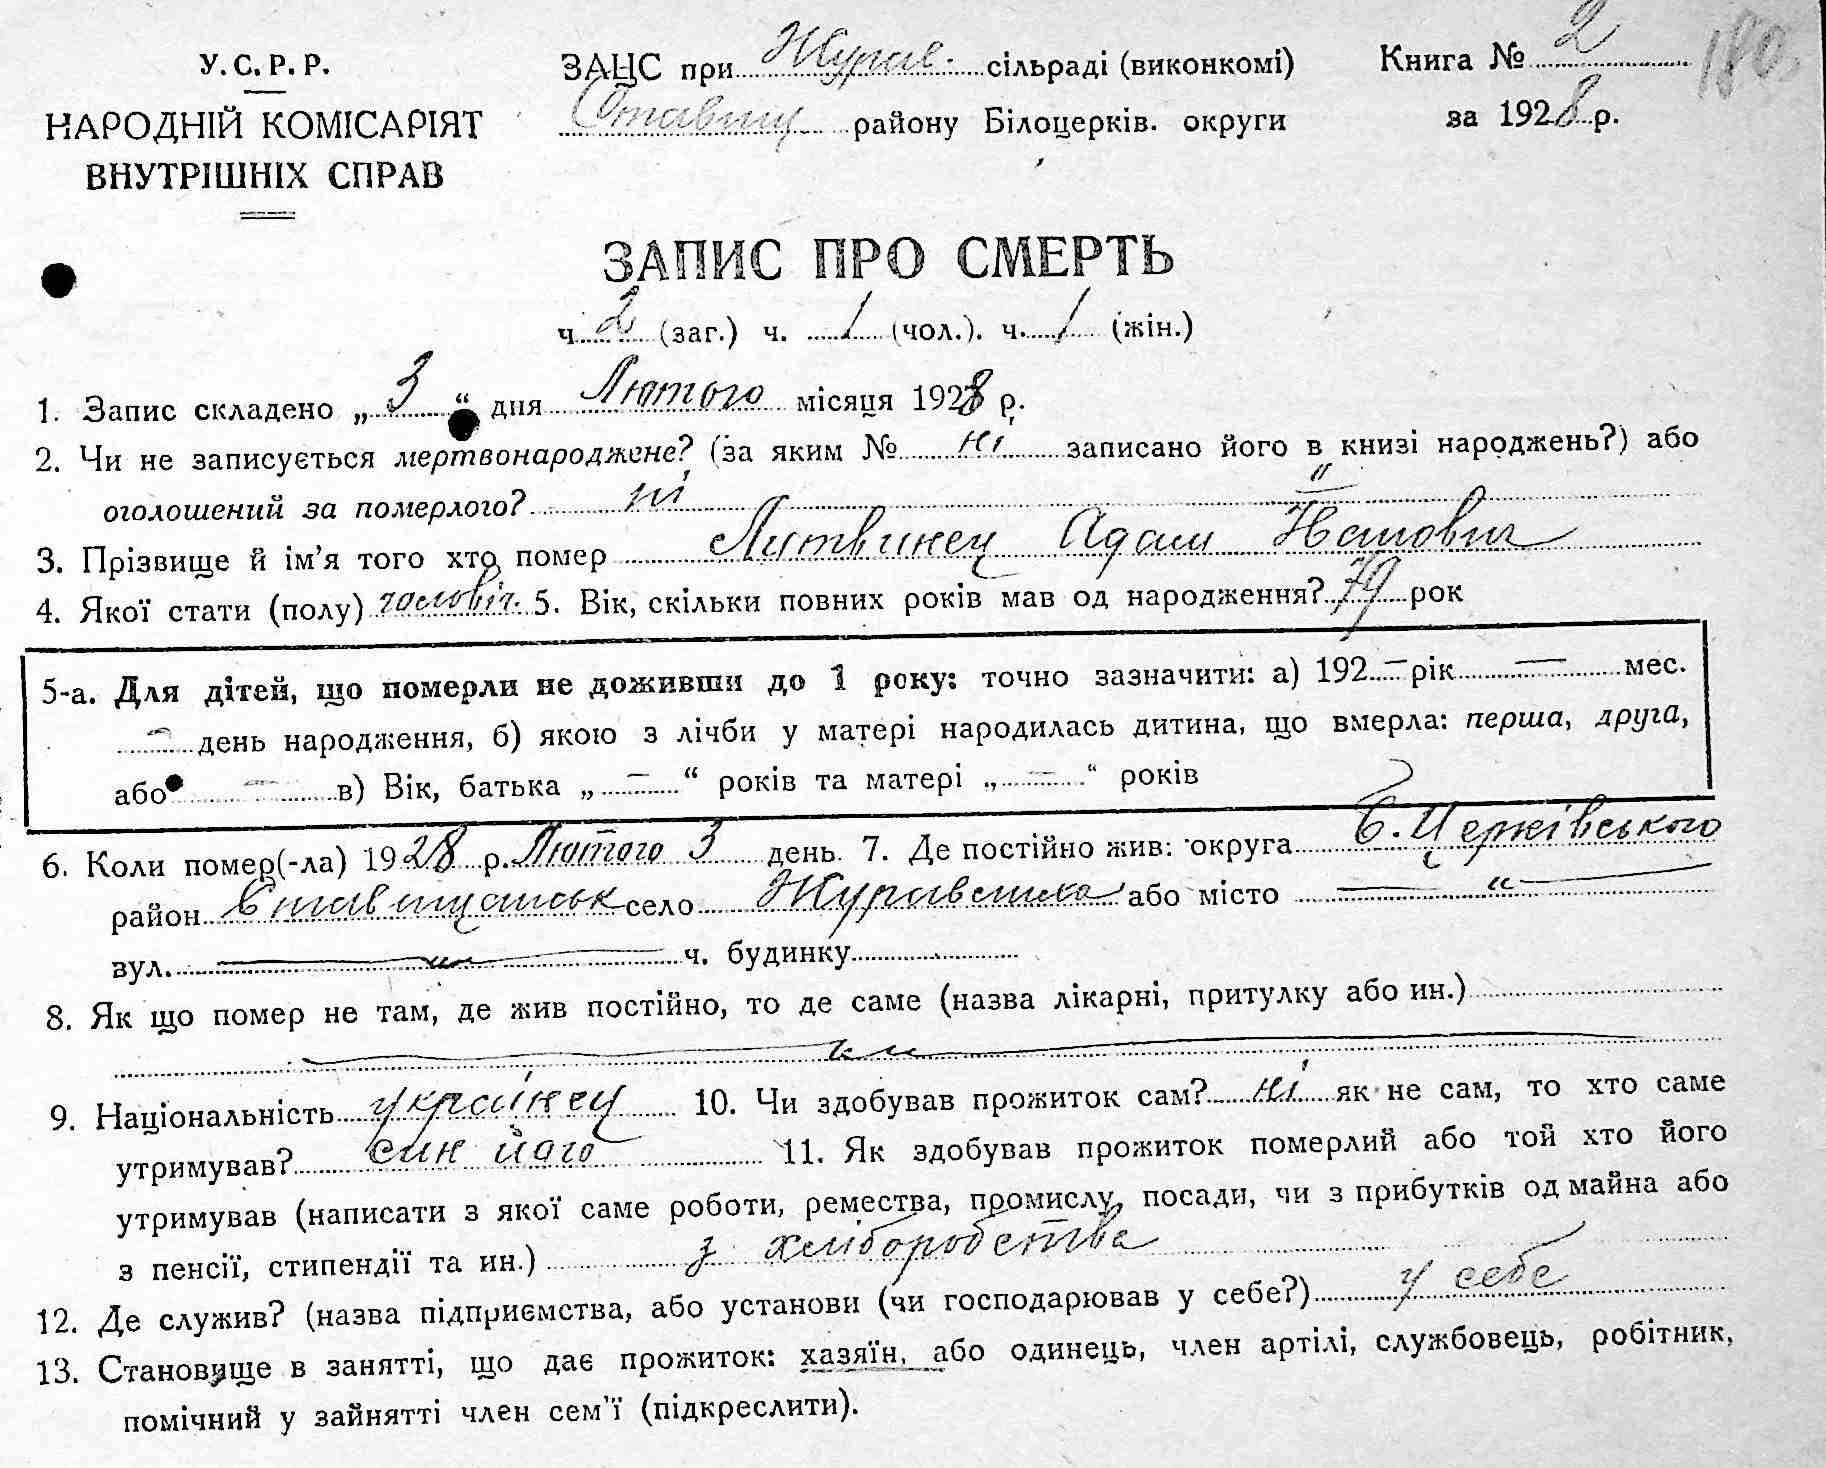 У.С.Р.Р.
НАРОДНІЙ КОМІСАРІЯТ
ВНУТРІШНІХ СПРАВ
ЗАЦС при Журав. сільраді (виконкомі)
Ставищ району Білоцерків. округи
Книга № 2
за 1928 р.
180
ЗАПИС ПРО СМЕРТЬ
ч. 2 (заг.) ч. 1 (чол.). ч. 1 (жін.)
1. Запис складено „ 3 “ дня Лютого місяця 1928 р.
2. Чи не записується мертвонароджене? (за яким № ні записано його в книзі народжень?) або
оголошений за померлого? ні "
3. Прізвище й ім'я того хто помер Литвинец Адам
4. Якої стати (полу) чоловіч. 5. Вік, скільки повних років мав од народження? 79 рок
5-а. Для дітей, що померли не доживши до 1 року: точно зазначити: а) 192 – рік — мес.
– день народження, б) якою з лічби у матері народилась дитина, що вмерла: перша, друга,
або – в) Вік, батька „ – “ років та матері „ – “ років
6. Коли помер(-ла) 1928 р. Лютого 3 день. 7. Де постійно жив: округа Б. Церківського
район Ставищанськ село Журавлиха або місто — „ —
вул. — „ — ч. будинку
8. Як що помер не там, де жив постійно, то де саме (назва лікарні, притулку або ин.)
9. Національність українец 10. Чи здобував прожиток сам? ні як не сам, то хто саме
утримував? син його 11. Як здобував прожиток померлий або той хто його
утримував (написати з якої саме роботи, ремества, промислу, посади, чи з прибутків од майна або
з пенсії, стипендії та ин.) з хліборобства
12. Де служив? (назва підприємства, або установи (чи господарював у себе?) у себе
13. Становище в занятті, що дає прожиток: хазяїн, або одинець, член артілі, службовець, робітник,
помічний у зайнятті член сем'ї (підкреслити).